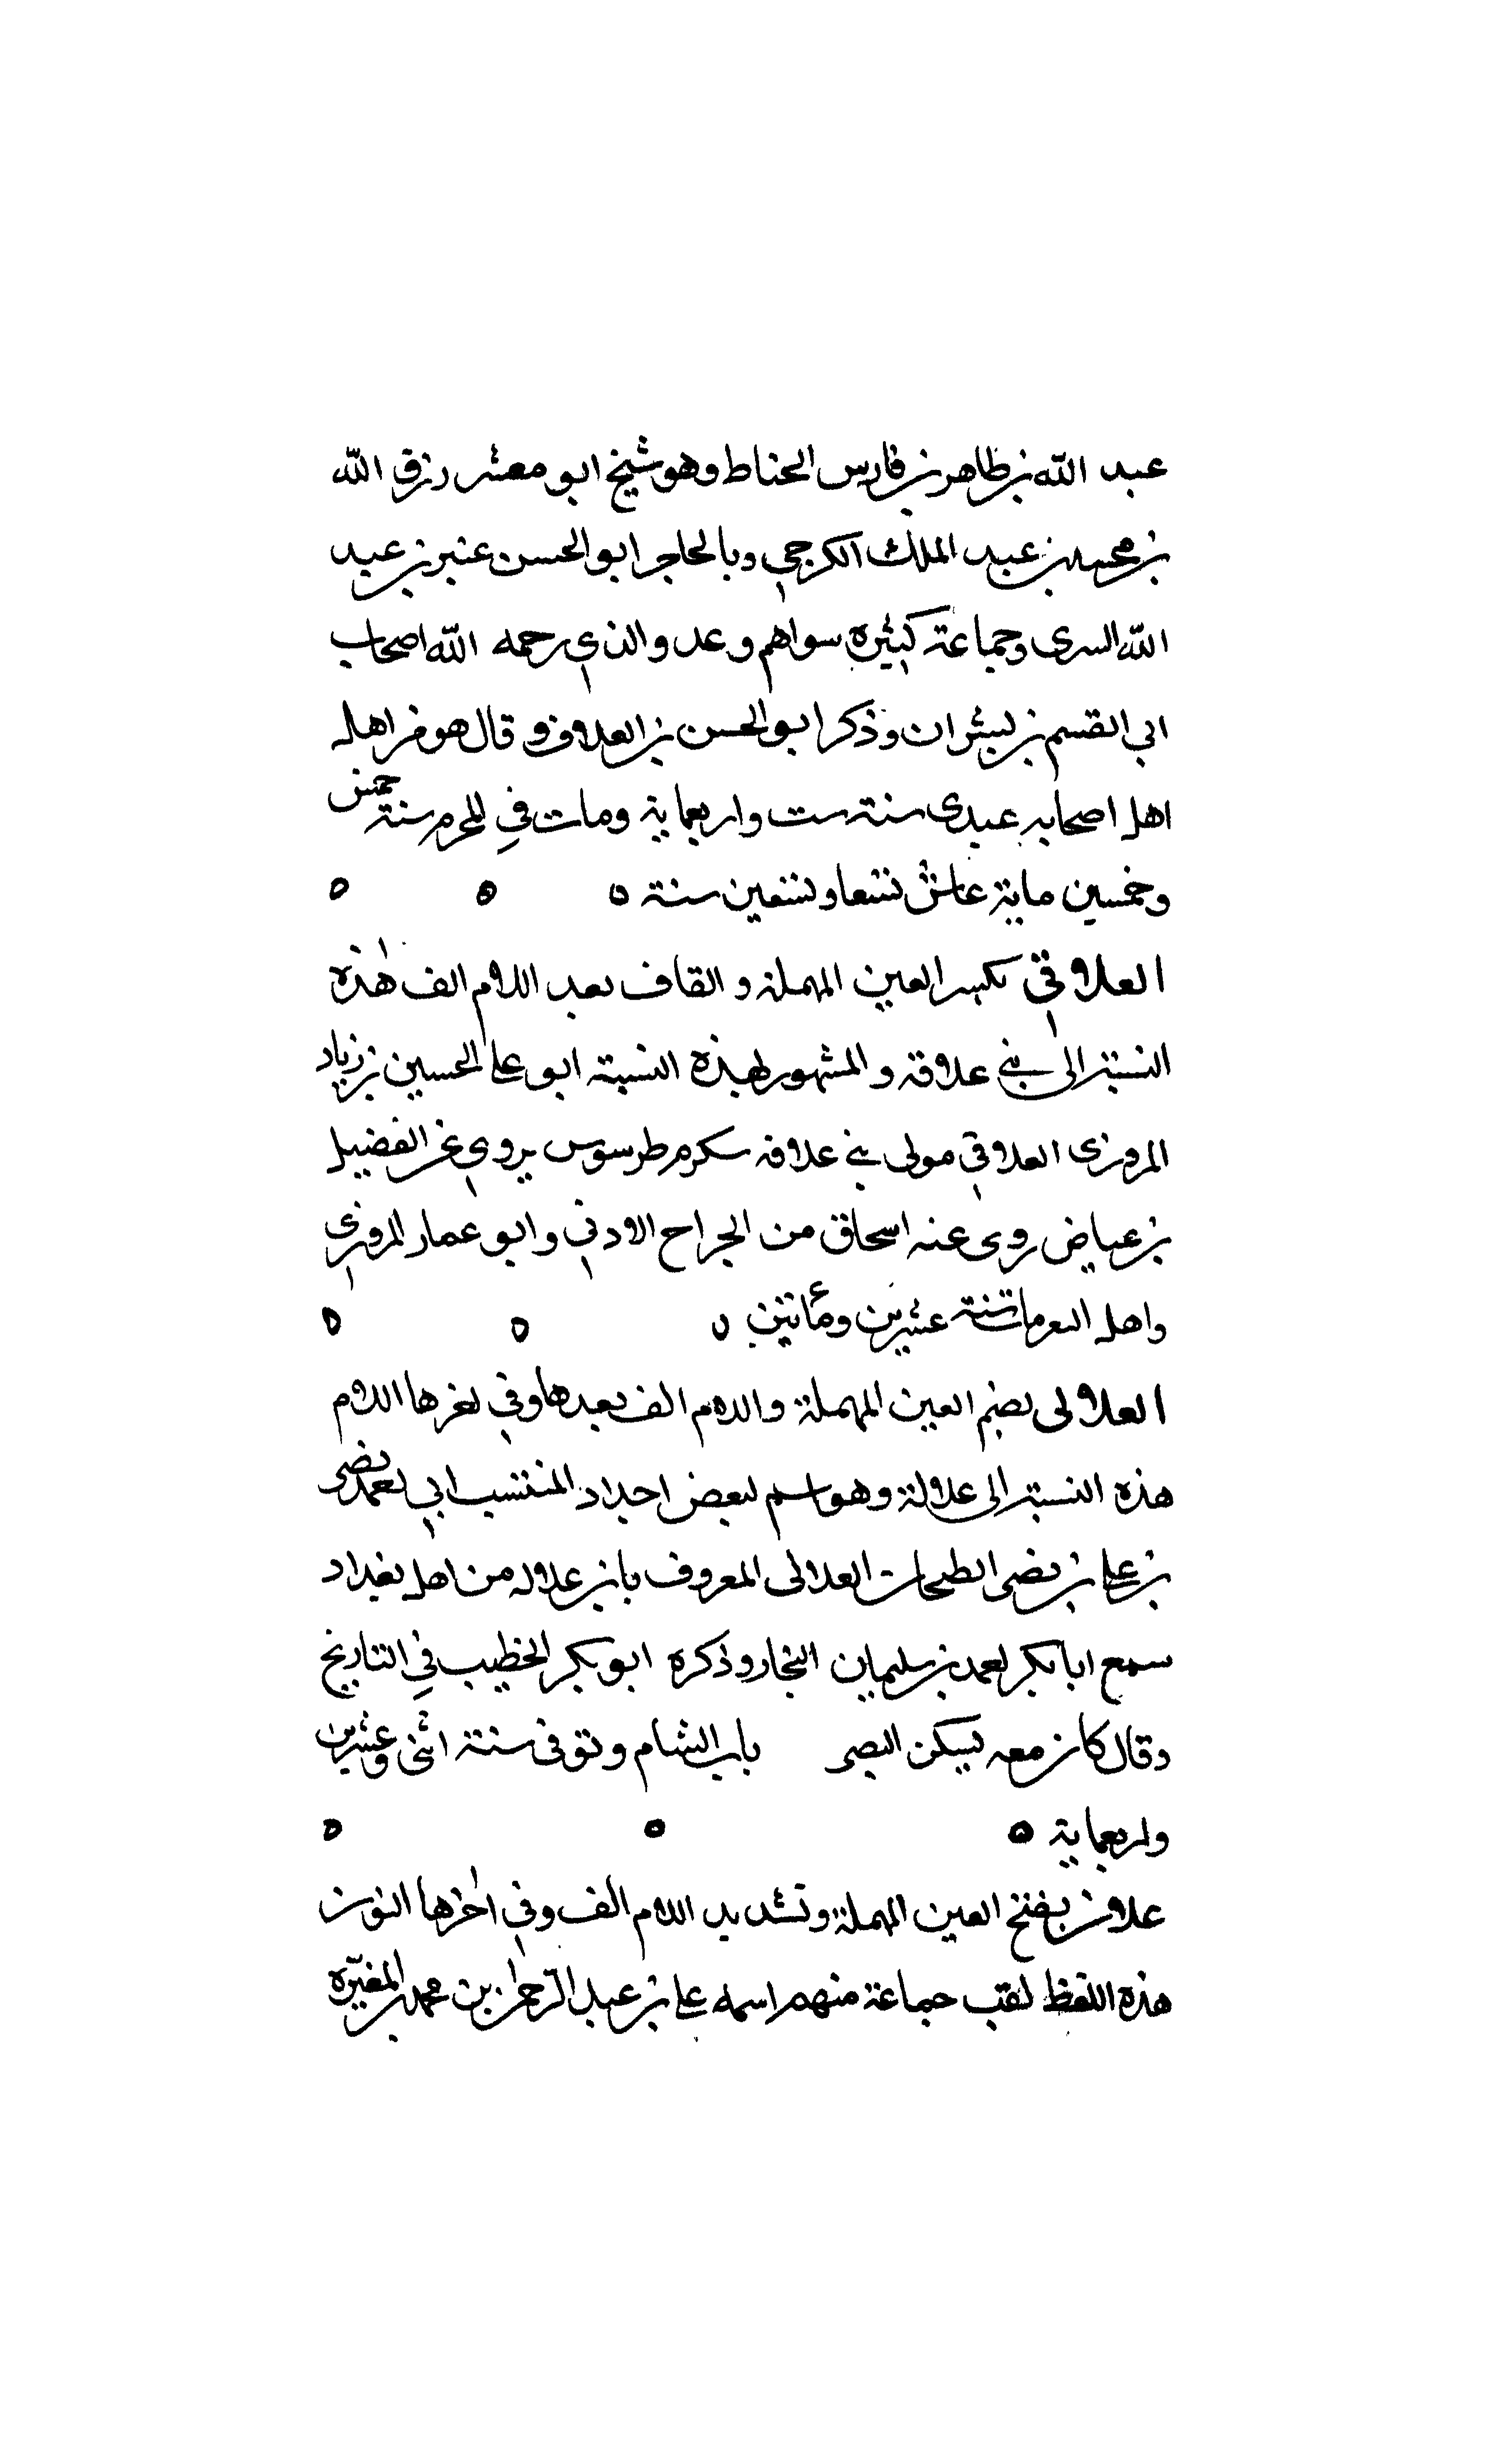 عبد الله بن طاهر بن فارس الحناط وهو شيخ ابو معشر رزق الله
بن محمد بن عبد الملك الكرجي وبالحاجر ابو الحسن عنبر بن عبد
الله السرى وجماعة كثيره سواهم وعد والدي رحمه الله اصحاب
ابي القسم بن بشران وذكر ابو الحسن بن العلاف وقال هو من اهله
اهل اصحابه عبدى سنة ست واربعماية ومات في المحرم سنة خمس
وخمسين ماية عاش تسعا وتسعين سنة ٥ ٥ ٥
العلاقي بكسر العين المهملة والقاف بعد اللام الف هذه
النسبة الى بني علاقة والمشهور بهذه النسبة ابو على الحسين بن زياد
المروزى العلاقي مولى بني علاقه سكن طرسوس يروي عن الفضيل
بن عياض روى عنه اسحاق من الجراح الادني وابو عمار المروزي
واهل مات سنة عشرين ومأتين ٥ ٥ ٥
العلالى بضم العين المهملة واللام الف بعدها وفي اخرها اللام
هذه النسبة الى علالة وهو اسم لبعض اجداد المنتسب ابي
بن على بن الطحان العلالى المعروف بابن علاله من اهل بغداد
سمع ابا بكر احمد بن سليمان النجار وذكره ابو بكر الخطيب في التاريخ
وقال كان معه يسكن باب الشام وتوفى سنة اثنى وعشرين
واربعماية ٥ ٥ ٥
علان بفتح العين المهملة وتشديد اللام الف وفي اخرها النون
هذه اللفظ لقب جماعة منهم اسمه على بن عبد الرحمن بن محمد بن المغيره